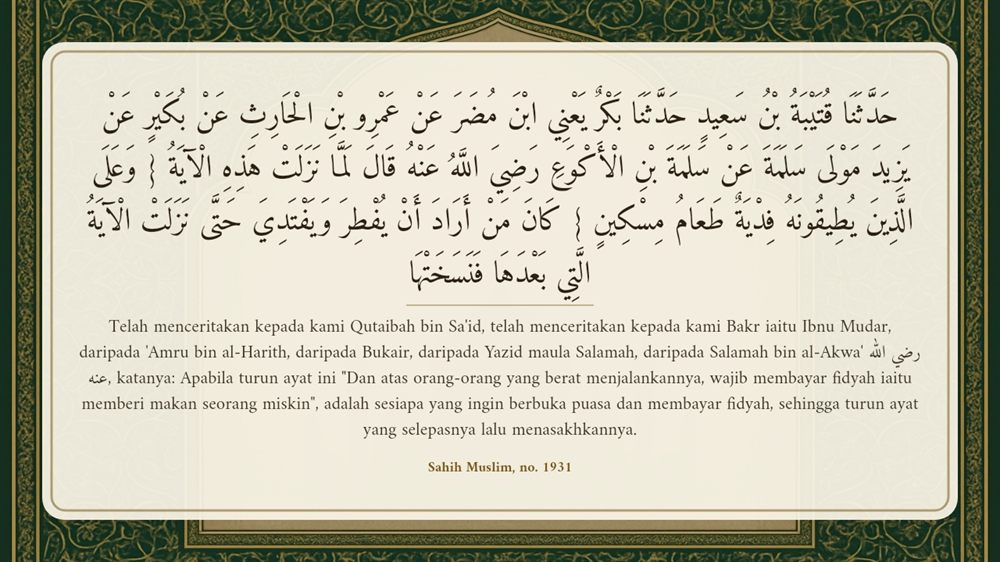 حَدَّثَنَا قُتَيْبَةُ بْنُ سَعِيدٍ حَدَّثَنَا بَكْرٌ يَعْنِي ابْنَ مُضَرَ عَنْ عَمْرِو بْنِ الْحَارِثِ عَنْ بُكَيْرٍ عَنْ
يَزِيدَ مَوْلَى سَلَمَةَ عَنْ سَلَمَةَ بْنِ الْأَكْوَعِ رَضِيَ اللَّهُ عَنْهُ قَالَ لَمَّا نَزَلَتْ هَذِهِ الْآيَةُ { وَعَلَى
الَّذِينَ يُطِيقُونَهُ فِدْيَةٌ طَعَامُ مِسْكِينٍ } كَانَ مَنْ أَرَادَ أَنْ يُفْطِرَ وَيَفْتَدِيَ حَتَّى نَزَلَتْ الْآيَةُ
الَّتِي بَعْدَهَا فَنَسَخَتْهَا
Telah menceritakan kepada kami Qutaibah bin Sa'id, telah menceritakan kepada kami Bakr iaitu Ibnu Mudar,
daripada 'Amru bin al-Harith, daripada Bukair, daripada Yazid maula Salamah, daripada Salamah bin al-Akwa' رضي الله
عنه, katanya: Apabila turun ayat ini "Dan atas orang-orang yang berat menjalankannya, wajib membayar fidyah iaitu
memberi makan seorang miskin", adalah sesiapa yang ingin berbuka puasa dan membayar fidyah, sehingga turun ayat
yang selepasnya lalu menasakhkannya.
Sahih Muslim, no. 1931